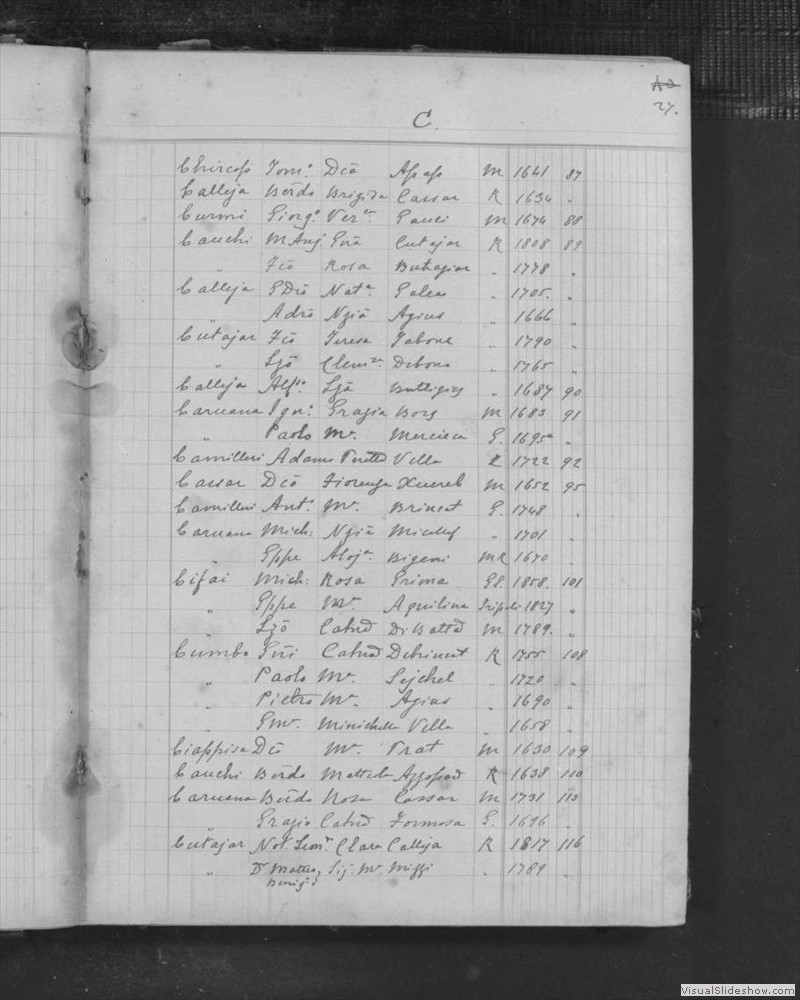 27.
C.
Chircop Tom.º Dcō Apap M 1641 87
Calleja Berdo Brigida Cassar R 1634 "
Curmi Giorg.º Ver.ca Gauci M 1674 88
Cauchi M Ang. Gña Cutajar R 1808 89
" Fcō Rosa Buhagiar " 1778 "
Calleja GDcō Nat.a Galea " 1705. "
" Adrō Ngiā Agius " 1666 "
Cutajar Fcō Teresa Tabone " 1790 "
" Lzō Clem.za Debono " 1765 "
Calleja Alf.o Lzā Buttigieg " 1687 90
Caruana Ign: Grazia Borg M 1683 91
" Paolo Mª. Mercieca G. 1695 "
Camilleri Adamo Vella R 1722 92
Cassar Dcō Fiorenza Xuereb M 1652 95
Camilleri Ant.º Mª. Brincat G. 1748 "
Caruana Mich: Ngiā Micallef " 1701 "
" Gppe Aloj.a Bigeni MR 1670 "
Cifai Mich: Rosa Grima GG. 1858. 101
" Gppe Mª. Aquilina Tripoli 1827 "
" Lzō Catnā Di Batta M 1789. "
Cumbo Catnā Debrincat R 1755 108
" Paolo Mª. Sejchel " 1720 "
" Pietro Mª. Agius " 1690 "
" Gmª. Minichella Vella " 1658 "
Ciappisa Dcō Mª. Prat M 1630 109
Cauchi Berdo Mattela Azzopad R 1638 110
Caruana Berdo Rosa Cassar M 1731 113
" Grazio Catnā Formosa G. 1696 "
Cutajar Not. Leon.º Clara Calleja R 1817 116
" Dr Matteo, Sig. Mª. Mizzi " 1789 "
VisualSlideshow.com